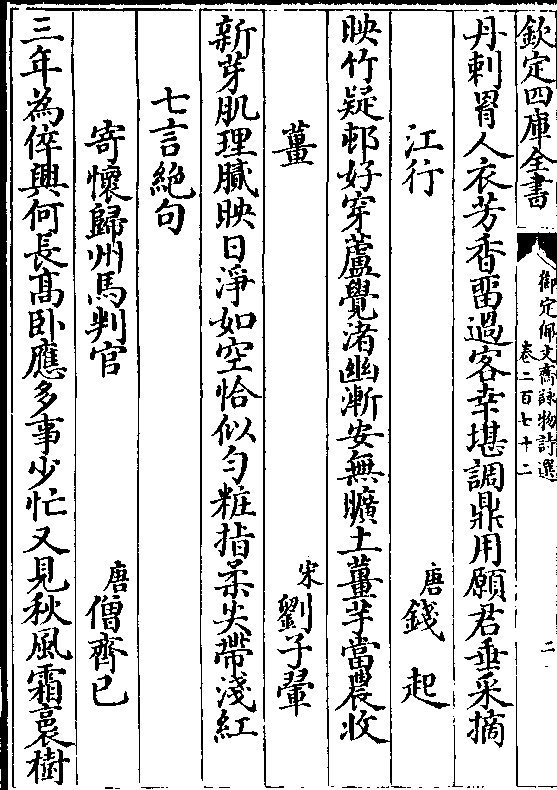 欽定四庫全書
御定佩文齋詠物詩選
卷二百七十二
二
丹刺罥人衣芳香畱過客幸堪調鼎用願君垂采摘
江行
唐錢起
映竹疑邨好穿蘆覺渚幽漸安無曠土薑芋當農收
薑
宋劉子翬
新芽肌理膩映日淨如空恰似勻粧指柔尖帶淺紅
七言絶句
寄懷歸州馬判官
唐僧齊已
三年為倅興何長髙卧應多事少忙又見秋風霜裛樹